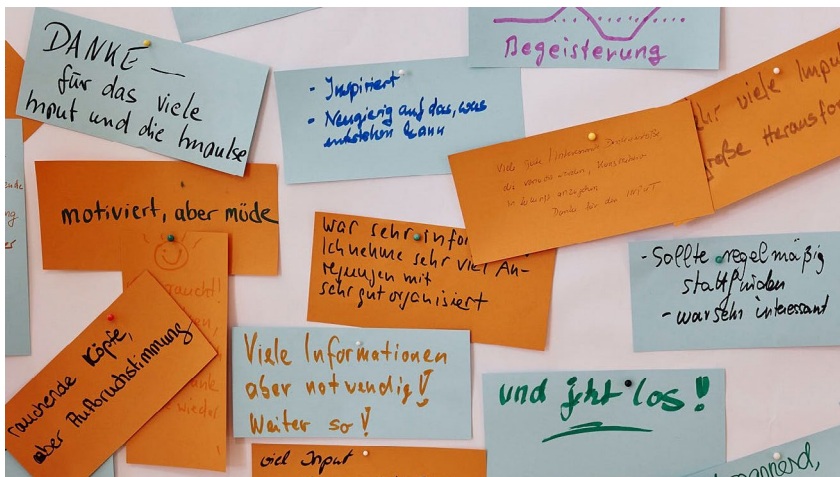 DANKE —
für das viele
Input und die Impulse
- Inspiriert
- Neugierig auf das, was
entstehen kann
Begeisterung
viele Impu
große Herausfo
Viele gute
Danke für den INPUT
motiviert, aber müde
war sehr infor
Ich nehme sehr viel An-
regungen mit
sehr gut organisiert
- Sollte regelmäßig
stattfinden
- war sehr interessant
rauchende Köpfe,
aber Aufbruchstimmung
Viele Informationen
aber notwendig!
Weiter so!
und jetzt los!
viel Input